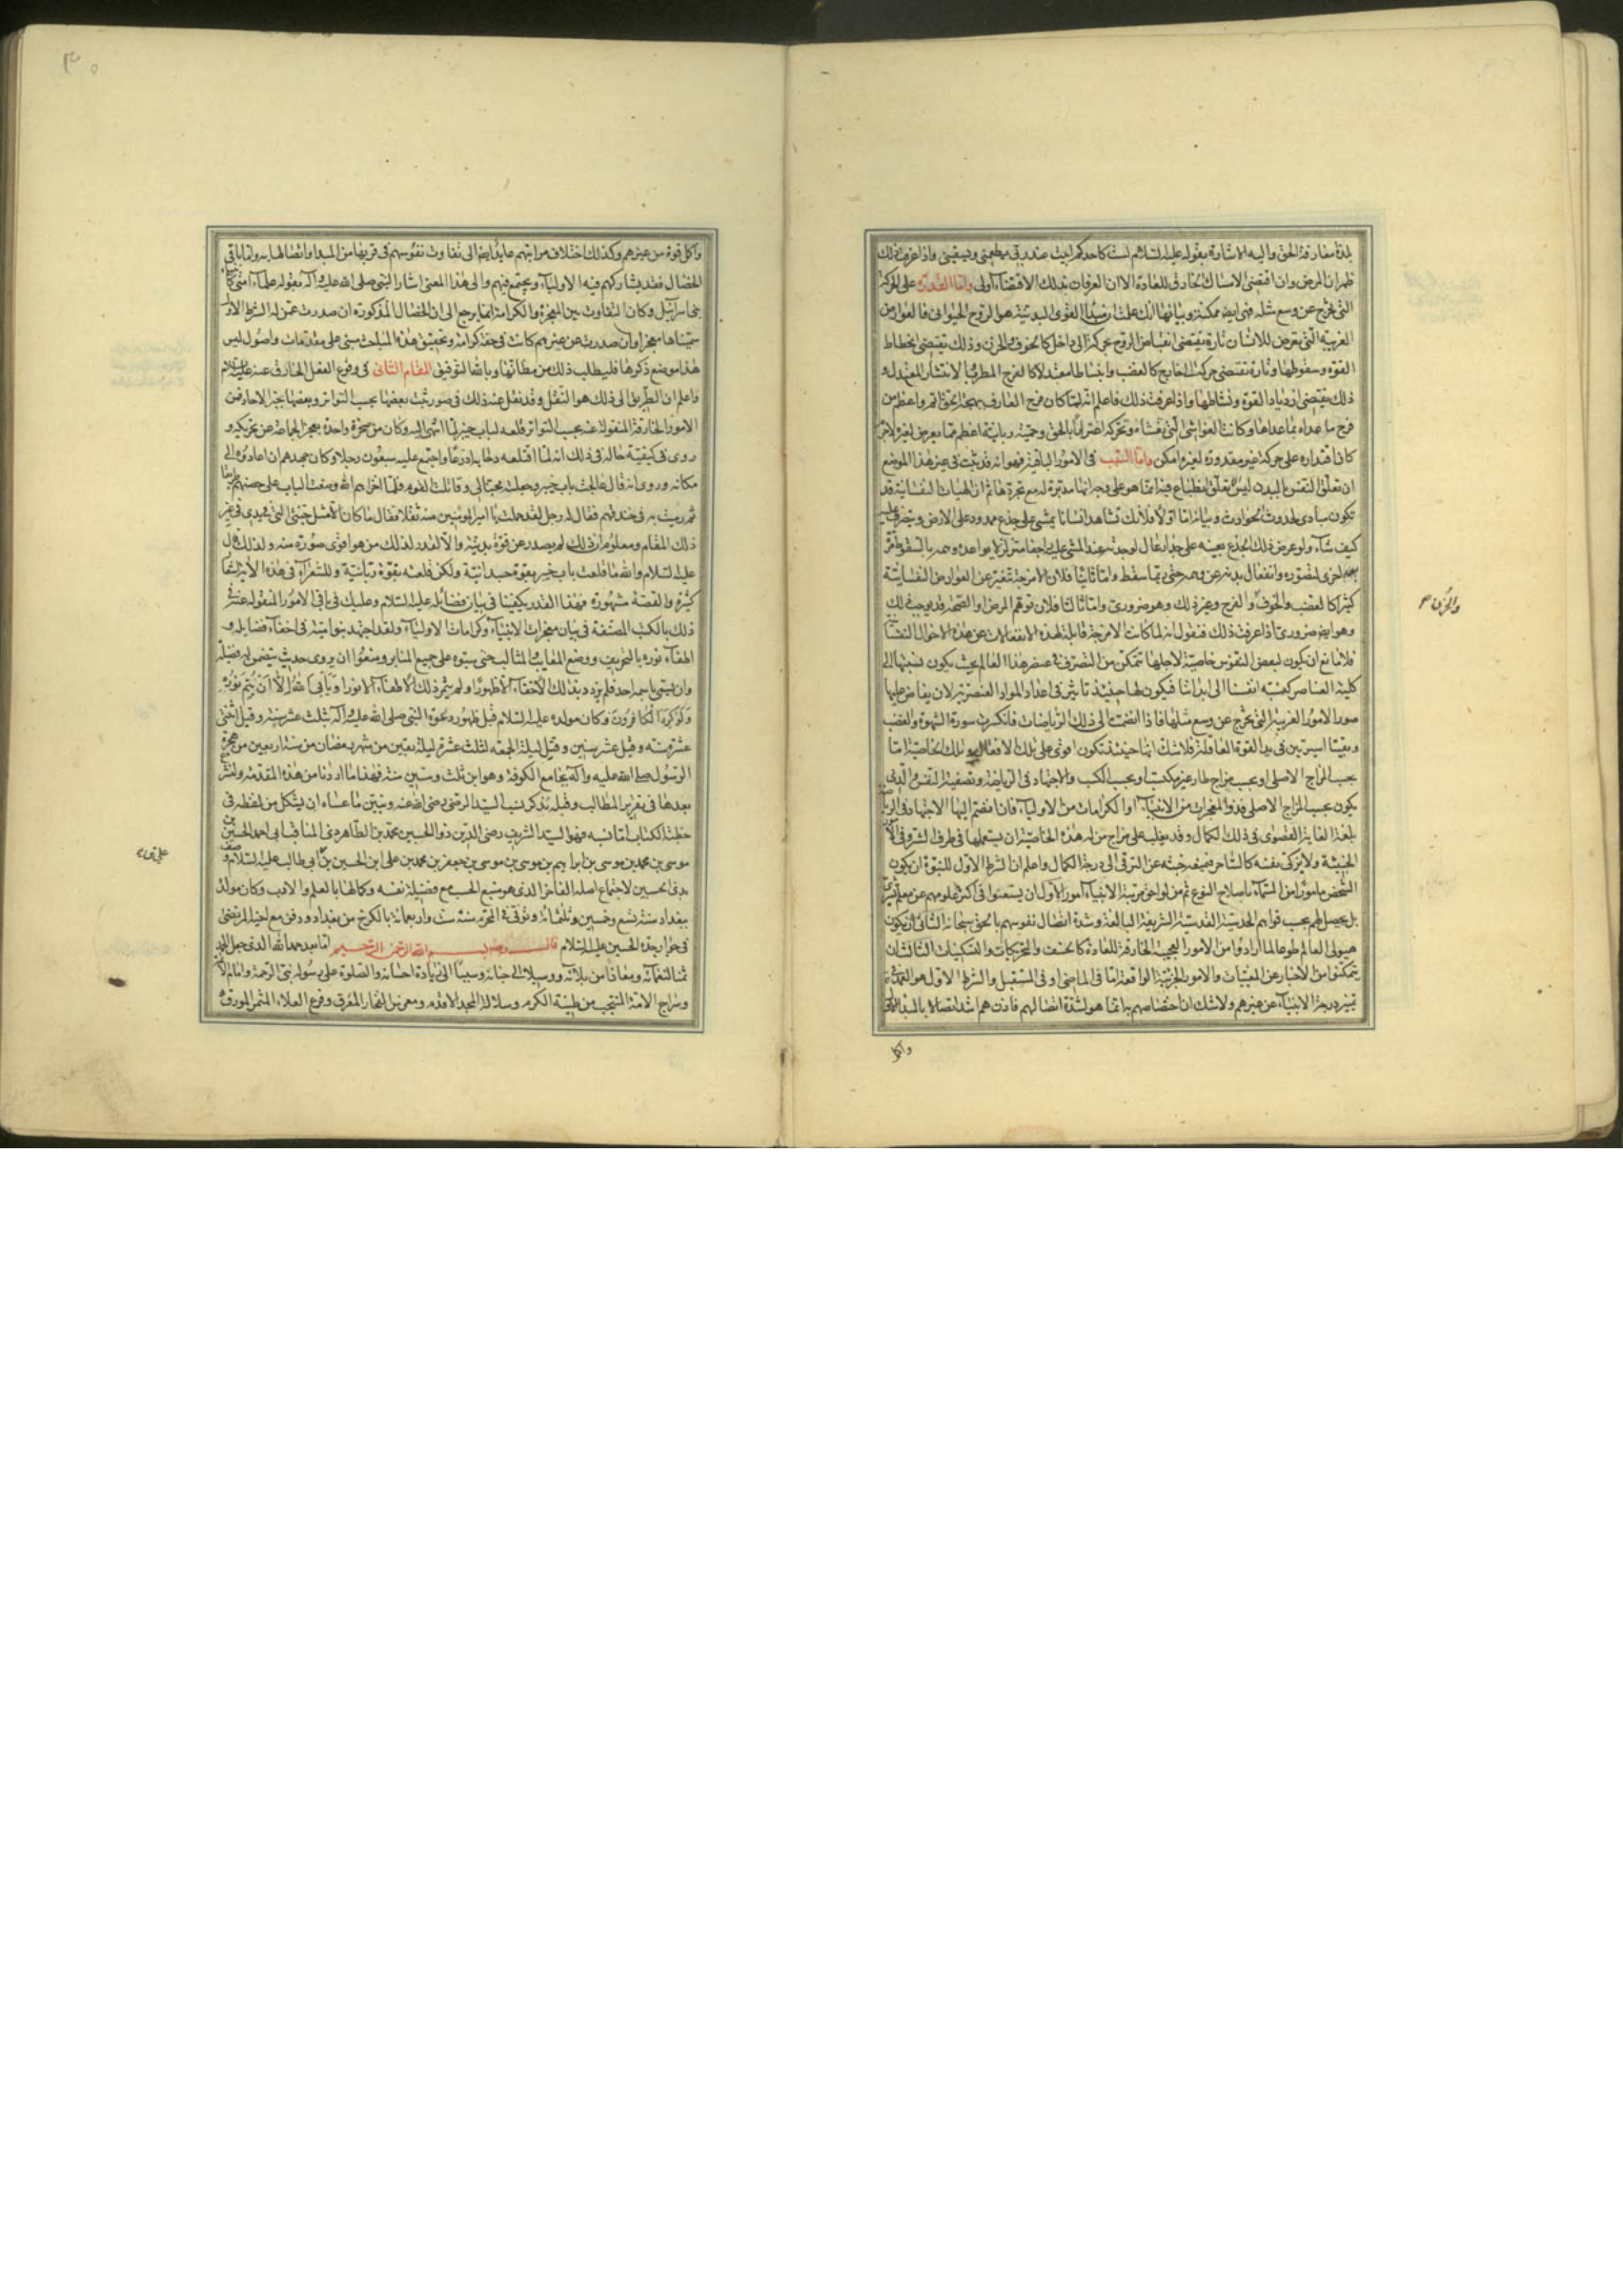 بلذة معارفة الحق واليه الاشارة بقوله عليه السلام لست كاحدكم ابيت عند ربي يطعمني ويسقيني واذا عرفت ذلك
ظهر ان المرض وان اقتضى الامساك الخارق للعادة الا ان العرفان بذلك الاقتضاء اولى واما القدرة على الحركة
التي تخرج عن وسع مثله فهي ايضا ممكنة وبيانها انك علمت ان مبدأ القوى البدنية هو الروح الحيواني فالعوارض
الغريبة التي تعرض للانسان تارة تقتضي انقباض الروح بحركته الى داخل كالخوف والحزن وذلك يقتضي انحطاط
القوة وسقوطها وتارة تقتضي حركته الى خارج كالغضب وانبساطا معتدلا كالفرح المطرب والانتشار المعتدل و
ذلك يقتضي ازدياد القوة ونشاطها واذا عرفت ذلك فاعلم انه لما كان فرح العارف ببهجة الحق اتم واعظم من
فرح ما عداه بما عداها وكانت الغواشي التي تغشاه وتحركه اعتزازا بالحق وحمية ربانية اعظم مما يعرض لغيره لاجرم
كان اقتداره على حركة غير مقدورة لغيره امكن واما السبب في الامور الباقية فهو انه قد ثبت في غير هذا الموضع
ان تعلق النفس بالبدن ليس تعلق انطباع فيه انما هو على وجه انها مدبرة له مع تجردها ثم ان الهيئات النفسانية قد
تكون مبادي لحدوث الحوادث وبيانه اما اولا فلانك تشاهد انسانا يمشي على جذع ممدود على الارض ويتصرف عليه
كيف شاء ولو عرض ذلك الجذع بعينه على جدار عال لوجدته عند المشي عليه راجفا متزلزلا يواعده وهمه بالسقوط مرة
بعد اخرى لتصوره وانفعال بدنه عن وهمه حتى ربما سقط واما ثانيا فلان الامزجة تتغير عن العوارض النفسانية
كثيرا كالغضب والخوف والفرح وغير ذلك وهو ضروري واما ثالثا فلان توهم المرض او الصحة قد يوجب ذلك
والحزن
وهو ايضا ضروري اذا عرفت ذلك فنقول انه لما كانت الامزجة قابلة لهذه الانفعالات عن هذه الاحوال النفسانية
فلا مانع ان يكون لبعض النفوس خاصية لاجلها تتمكن من التصرف في عنصر هذا العالم بحيث يكون نسبتها الى
كلية العناصر كنسبة انفسنا الى ابداننا فيكون لها حينئذ تاثير في اعداد المواد العنصرية لان يفاض عليها
صور الامور الغريبة التي تخرج عن وسع مثلها فاذا انضمت الى ذلك الرياضات فانكسرت سورة الشهوة والغضب
وبقيتا اسيرتين في يد القوة العاقلة فلا شك انها حينئذ تكون اقوى على تلك الافعال وتلك الخاصية اما
بحسب المزاج الاصلي او بحسب مزاج طار غير مكتسب او بحسب الكسب والاجتهاد في الرياضة وتصفية النفس والذي
يكون بحسب المزاج الاصلي فذو المعجزات من الانبياء او الكرامات من الاولياء فان انضم اليها الاجتهاد في الرياضة
بلغت الغاية القصوى في ذلك الكمال وقد يغلب على مزاج من له هذه الخاصية ان يستعملها في طرف الشر وفي الامور
الخبيثة ولا يزكي نفسه كالساحر فيمنعه خبثه عن الترقي الى درجة الكمال واعلم ان الشرط الاول للنبوة ان يكون
الشخص مامورا من السماء باصلاح النوع ثم من لواحق مرتبة الانبياء امور الاول ان يستغنوا في اكثر علومهم عن معلم بشري
بل يحصل لهم بحسب قواهم الحدسية القدسية الشريفة البالغة وشدة اتصال نفوسهم بالحق سبحانه الثاني ان يكون
هيولى العالم طوعا لما ارادوا من الامور العجيبة الخارقة للعادة كالخسف والتحريكات والتسكينات الثالث ان
يتمكنوا من الاخبار عن المغيبات والامور الجزئية الواقعة اما في الماضي او في المستقبل والشرط الاول هو العمدة في
تميز درجة الانبياء عن غيرهم ولا شك ان اختصاصهم به انما هو لشدة اتصالهم فاذن هم اشد اتصالا بالمبدأ الاول
واكل
واكل قوة من غيرهم وكذلك اختلاف مراتبهم عايد ايضا الى تفاوت نفوسهم في قربها من المبدا واتصالها به واما باقي
الخصال فقد يشاركهم فيه الاولياء ويجتمع فيهم والى هذا المعنى اشار النبي صلى الله عليه واله بقوله علماء امتي كانبياء
بني اسرائيل وكان التفاوت بين المعجزة والكرامة انما يرجع الى ان الخصال المذكورة ان صدرت عمن له الشرط الاول
سميناها معجزا وان صدرت عن غيرهم كانت في حقه كرامة وتحقيق هذه المباحث مبني على مقدمات واصول ليس
هذا موضع ذكرها فليطلب ذلك من مظانها وبالله التوفيق المقام الثاني في وقوع الفعل الخارق عنه عليه السلام
واعلم ان الطريق الى ذلك هو النقل وقد نقل عنه ذلك في صور ثبت بعضها بحسب التواتر وبعضها بخبر الاحاد فمن
الامور الخارقة المنقولة عنه بحسب التواتر قلعه لباب خيبر لما انتهى اليه وكان من صخرة واحدة يعجز الجماعة عن تحريكه و
روي في كيفية حاله في ذلك انه لما اقتلعه دحا به اذرعا واجتمع عليه سبعون رجلا وكان جهدهم ان اعادوه الى
مكانه وروي انه قال عالجت باب خيبر وجعلته مجنا لي وقاتلت القوم فلما اخزاهم الله وضعت الباب على حصنهم طريقا
ثم رميت به في خندقهم فقال له رجل لقد حملت يا امير المومنين منه ثقلا فقال ما كان الا مثل جنتي التي في يدي في غير
ذلك المقام ومعلوم ان ذلك لم يصدر عن قوة بدنية والا لقدر لذلك من هو اقوى صورة منه ولذلك قال
عليه السلام والله ما قلعت باب خيبر بقوة جسدانية ولكن قلعته بقوة ربانية وللشعراء في هذه الاية اشعار
كثيرة والقصة مشهورة فهذا القدر يكفينا في بيان فضائله عليه السلام وعليك في باقي الامور المنقولة عنه في
ذلك بالكتب المصنفة في بيان معجزات الانبياء وكرامات الاولياء ولقد اجتهد بنو امية في اخفاء فضايله و
اطفاء نوره بالتحريف ووضع المعايب والمثالب حتى سبوه على جميع المنابر ومنعوا ان يروى حديث يتضمن له فضيلة
وان يسمى باسمه احد فلم يزدد بذلك الاخفاء الا ظهورا ولم يثمر ذلك الاطفاء الا نورا ويأبى الله الا ان يتم نوره
ولو كره الكافرون وكان مولده عليه السلام قبل ظهور دعوة النبي صلى الله عليه واله بثلث عشر سنة وقيل اثنتي
عشرة سنة وقيل عشر سنين وقتل ليلة الجمعة لثلث عشرة ليلة بقين من شهر رمضان من سنة اربعين من هجرة
الرسول صلى الله عليه واله بجامع الكوفة وهو ابن ثلث وستين سنة فهذا ما اردنا من هذه المقدمة ولنشرع
بعدها في تقرير المطالب وقبله نذكر نسب السيد الرضي رضي الله عنه ونبين ما عساه ان يشكل من لفظه في
خطبة الكتاب اما نسبه فهو السيد الشريف رضي الدين ذو الحسبين محمد بن الطاهر ذي المناقب ابي احمد الحسين بن
موسى بن محمد بن موسى بن ابراهيم بن موسى بن جعفر بن محمد بن علي ابن الحسين بن ابي طالب عليه السلام وصف
علي بن
بذي الحسبين لاجتماع اصله الفاخر الذي هو منبع الحسب مع فضيلة نفسه وكمالها بالعلم والادب وكان مولده
ببغداد سنة تسع وخمسين وثلثمائة وتوفي في المحرم سنة ست واربعمائة بالكرخ من بغداد ودفن مع اخيه المرتضى
في جوار جده الحسين عليه السلام قال رضه بسم الله الرحمن الرحيم اما بعد حمد الله الذي جعل الحمد
ثمنا لنعمائه ومعاذا من بلائه ووسيلا الى جنانه وسببا الى زيادة احسانه والصلوة على رسوله نبي الرحمة وامام الائمة
وسراج الامة المنتجب من طينة الكرم وسلالة المجد الاقدم ومغرس الفخار المعرق وفرع العلاء المثمر المورق و